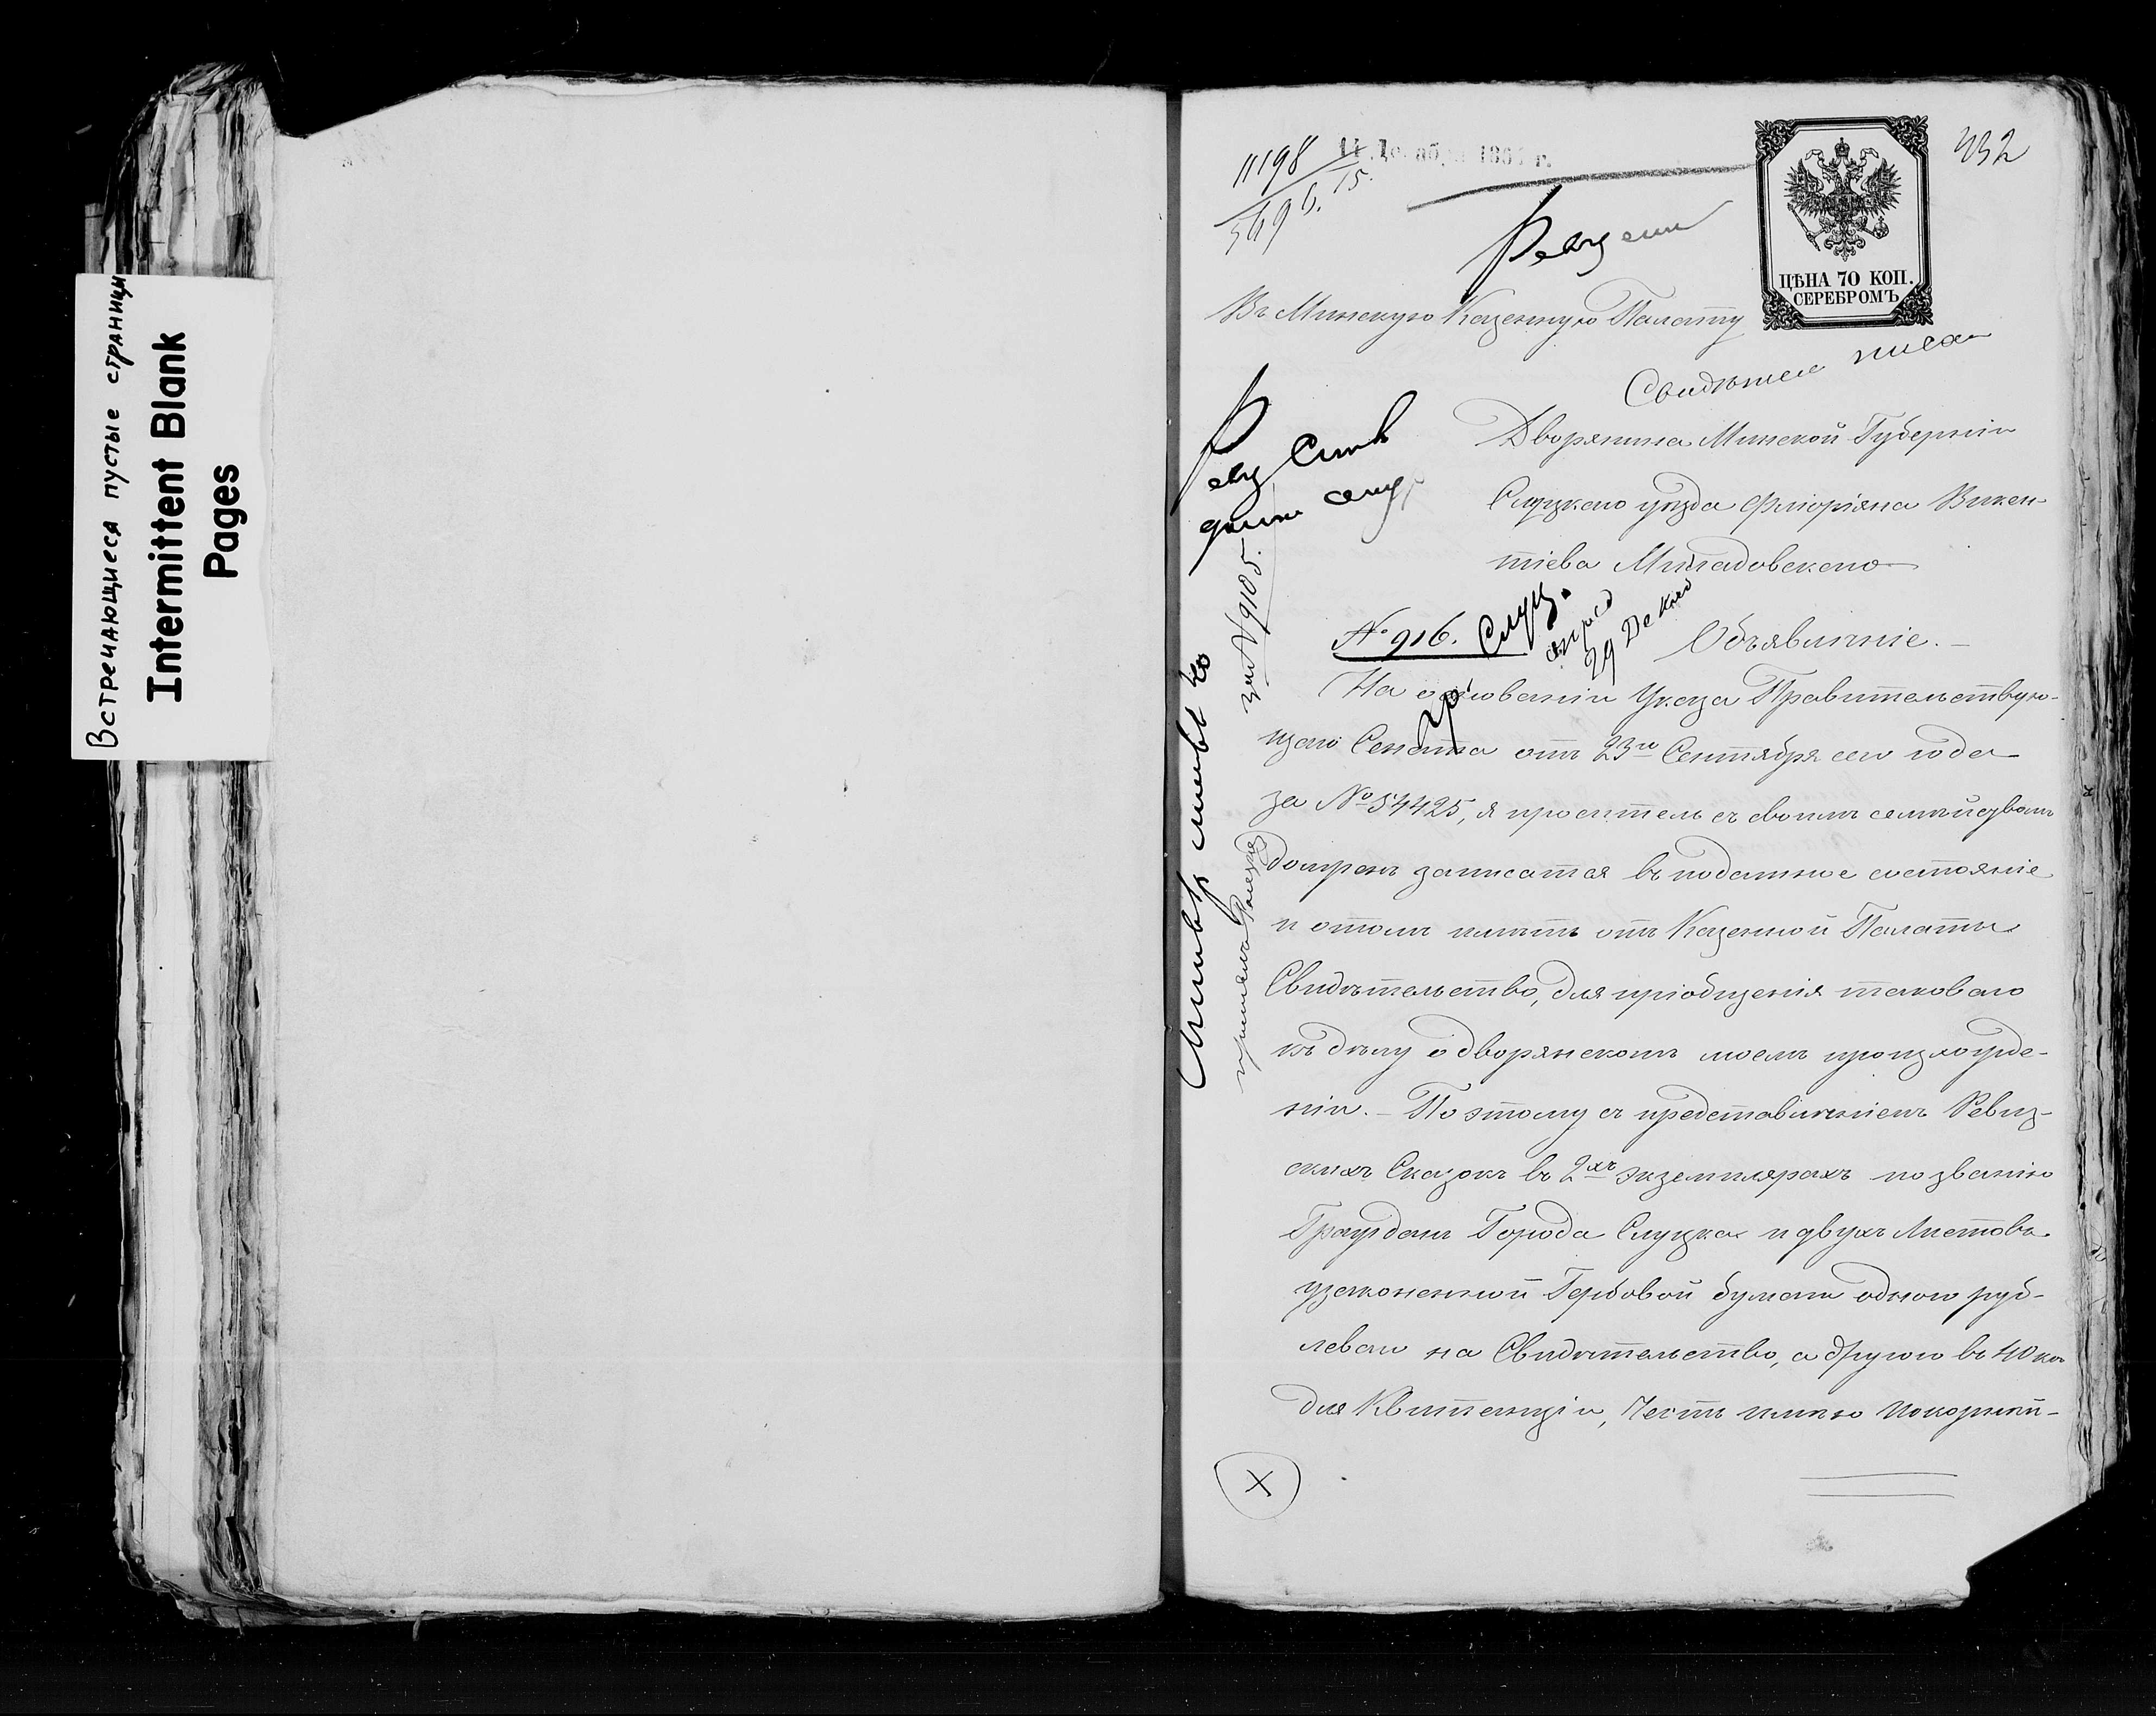 Встречающиеся пустые страницы
Intermittent Blank
Pages
11198
432
ЦѢНА 70 КОП.
СЕРЕБРОМЪ
Въ Минскую Казенную Палату
Дворянина Минской Губерніи
Слуцкаго уѣзда Флоріяна Викен-
тіева
№ 916.
29 Дек
Объявленіе.—
На основаніи Указа Правительствую-
щаго Сената отъ 23го Сентября сего года
за № 54425, я проситель съ своимъ семѣйствомъ
долженъ записатся въ податное состояніе
и отомъ имѣть отъ Казенной Палаты
Свидѣтельство, для пріобщенія таковаго
къ дѣлу о дворянскомъ моемъ происхожде-
ніи.— По этому съ представленіемъ Ревиз-
скихъ Сказокъ въ 2хъ экземплярахъ по званію
Граждан Города Слуцка и двухъ Листовъ
узаконенной Гербовой бумаги одного руб-
леваго на Свидѣтельство, а другого въ 40 ко
для Квитанціи, Честь имѣю покорнѣй-
X